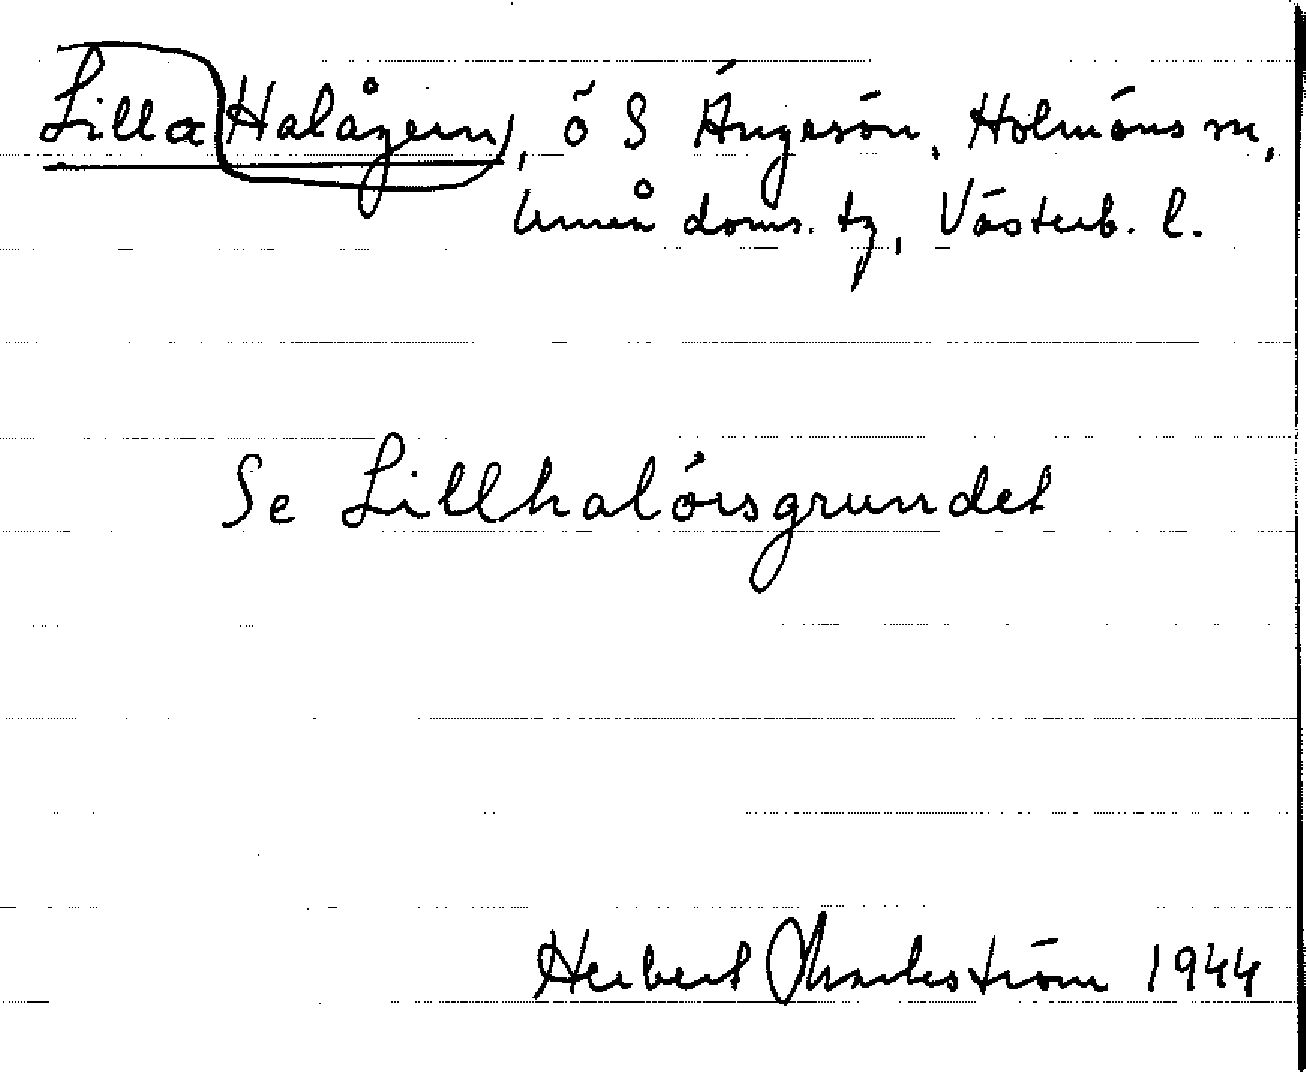 Lilla Halågern, ö S Ängesön, Holmöns sn,
Umeå doms. tg, Västerb. l.
Se Lillhalörsgrundet
Herbert Markström 1944